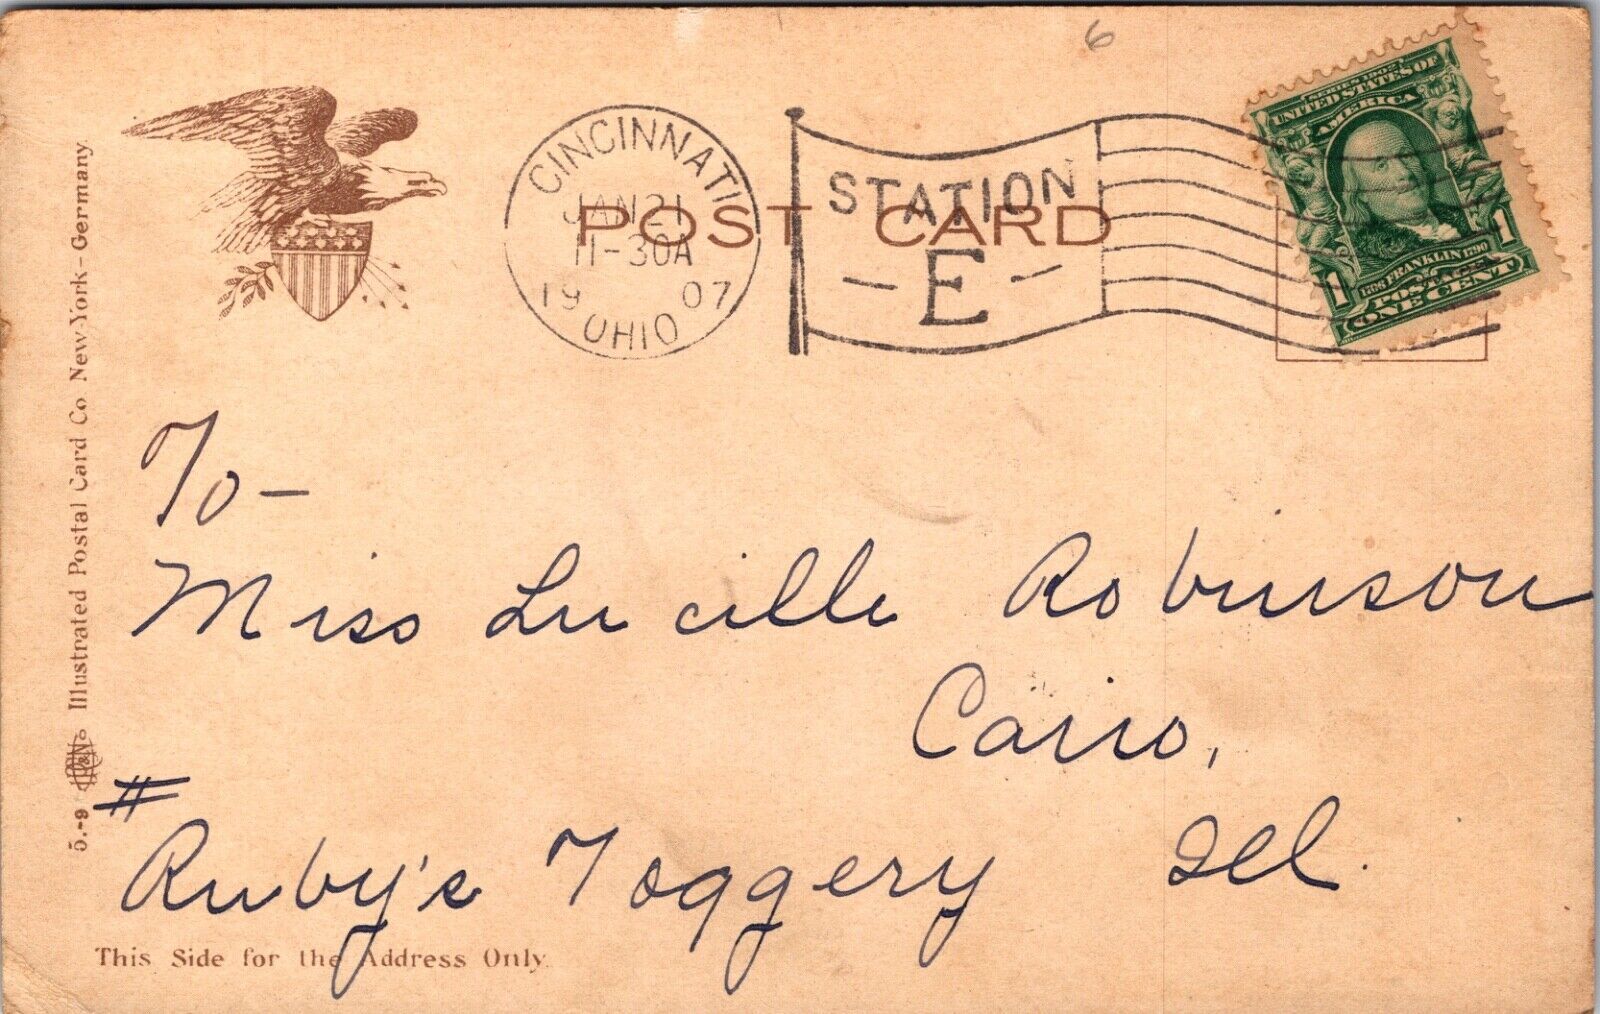 6
SERIES 1902
UNITED STATES OF
AMERICA
1
FRANKLIN
1
POSTAGE
ONE CENT
CINCINNATI
JAN 21
11-30A
19 07
OHIO
STATION
- E -
POST CARD
5.-9 Illustrated Postal Card Co. New-York - Germany.
To -
Miss Lucille Robinson
Cairo,
Ill.
#
Ruby's Toggery
This Side for the Address Only.